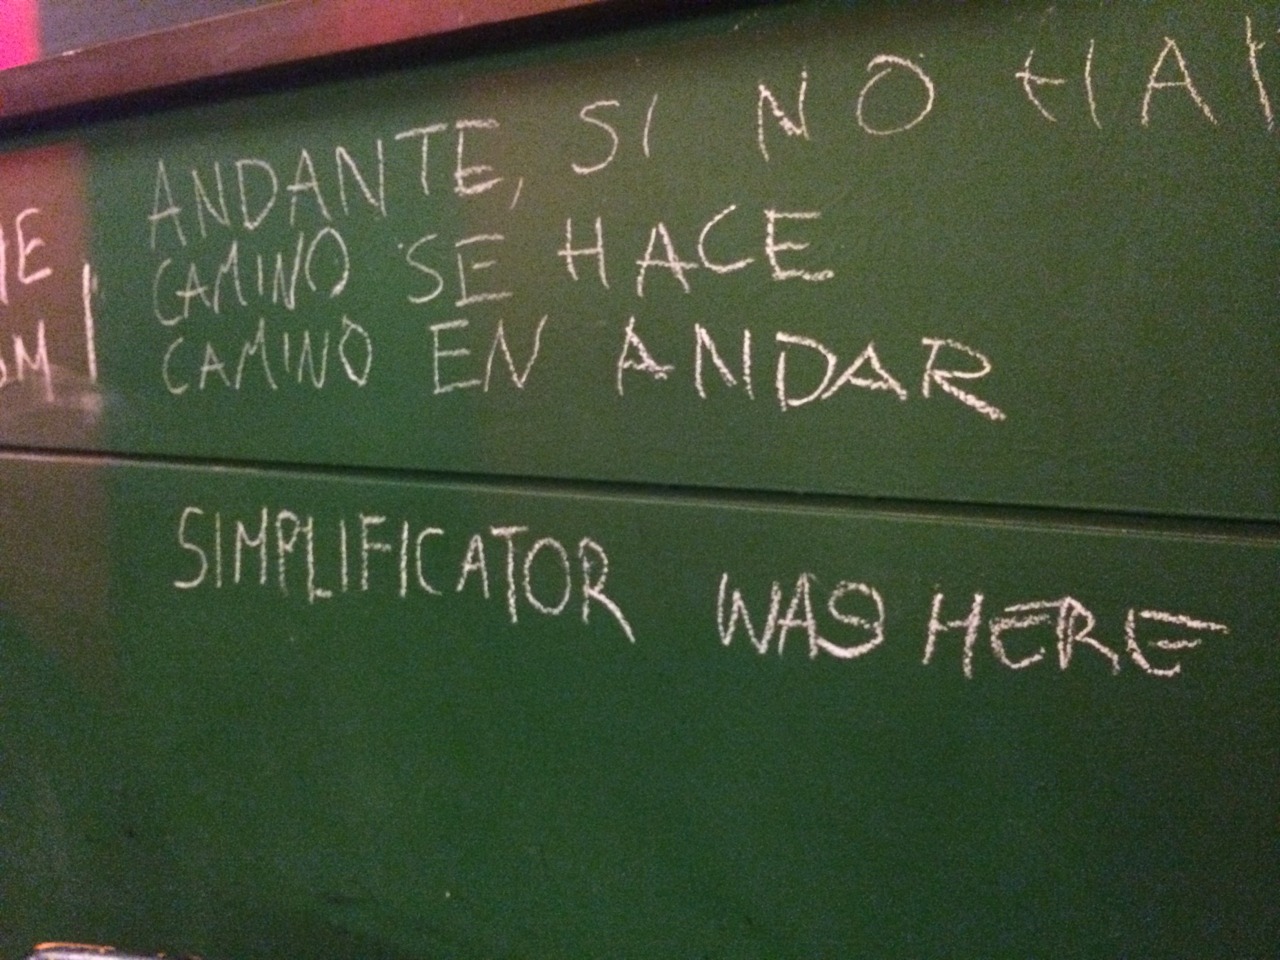 ANDANTE, SI NO HA
CAMINO SE HACE
CAMINO EN ANDAR
SIMPLIFICATOR WAS HERE